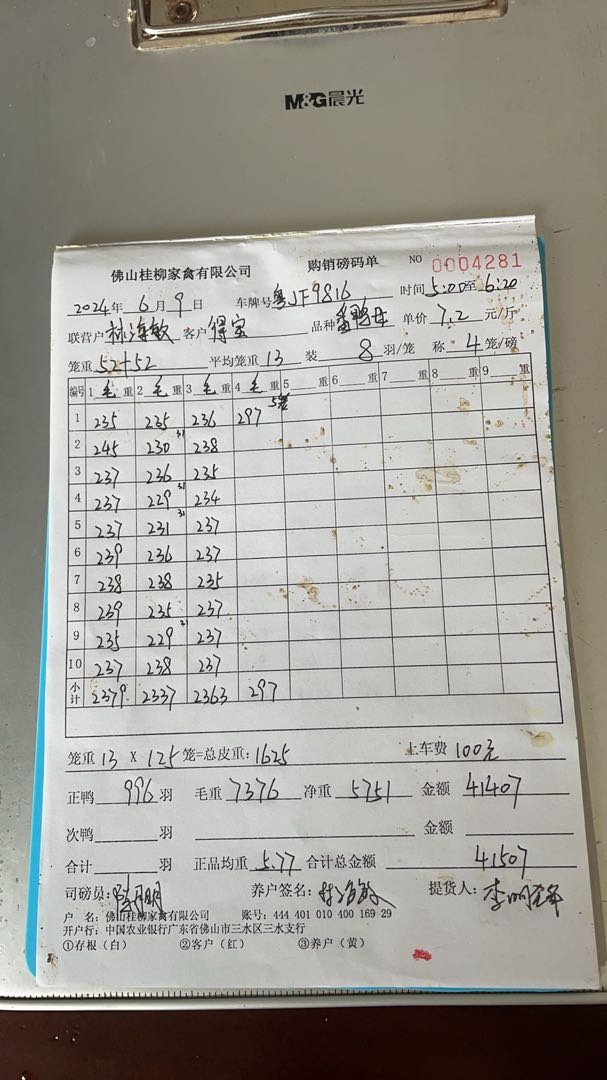 M&G晨光
佛山桂柳家禽有限公司 购销磅码单 NO 0004281
2024年6月9日 车牌号粤JF9816 时间5:00至6:20
联营户 林海敏 客户 得宝 品种番鸭母 单价7.2元/斤
笼重52+52 平均笼重13 装8羽/笼 称4笼/磅
编号 1毛重 2毛重 3毛重 4毛重 5重 6重 7重 8重 9重
1 235 235 236 297 5笼
2 245 230 31 238
3 237 236 235
4 237 229 31 234
5 237 231 31 237
6 239 236 237
7 238 238 235
8 239 235 237
9 235 229 31 237
10 237 238 237
小计 2379 2337 2363 297
笼重13 X 125笼=总皮重:1625 上车费100元
正鸭996羽 毛重7376 净重5751 金额41407
次鸭 羽 金额
合计 羽 正品均重5.77 合计总金额41507
司磅员: 养户签名:林海敏 提货人:
户 名:佛山桂柳家禽有限公司 账号:444 401 010 400 169 29
开户行:中国农业银行广东省佛山市三水区三水支行
①存根(白) ②客户(红) ③养户(黄)